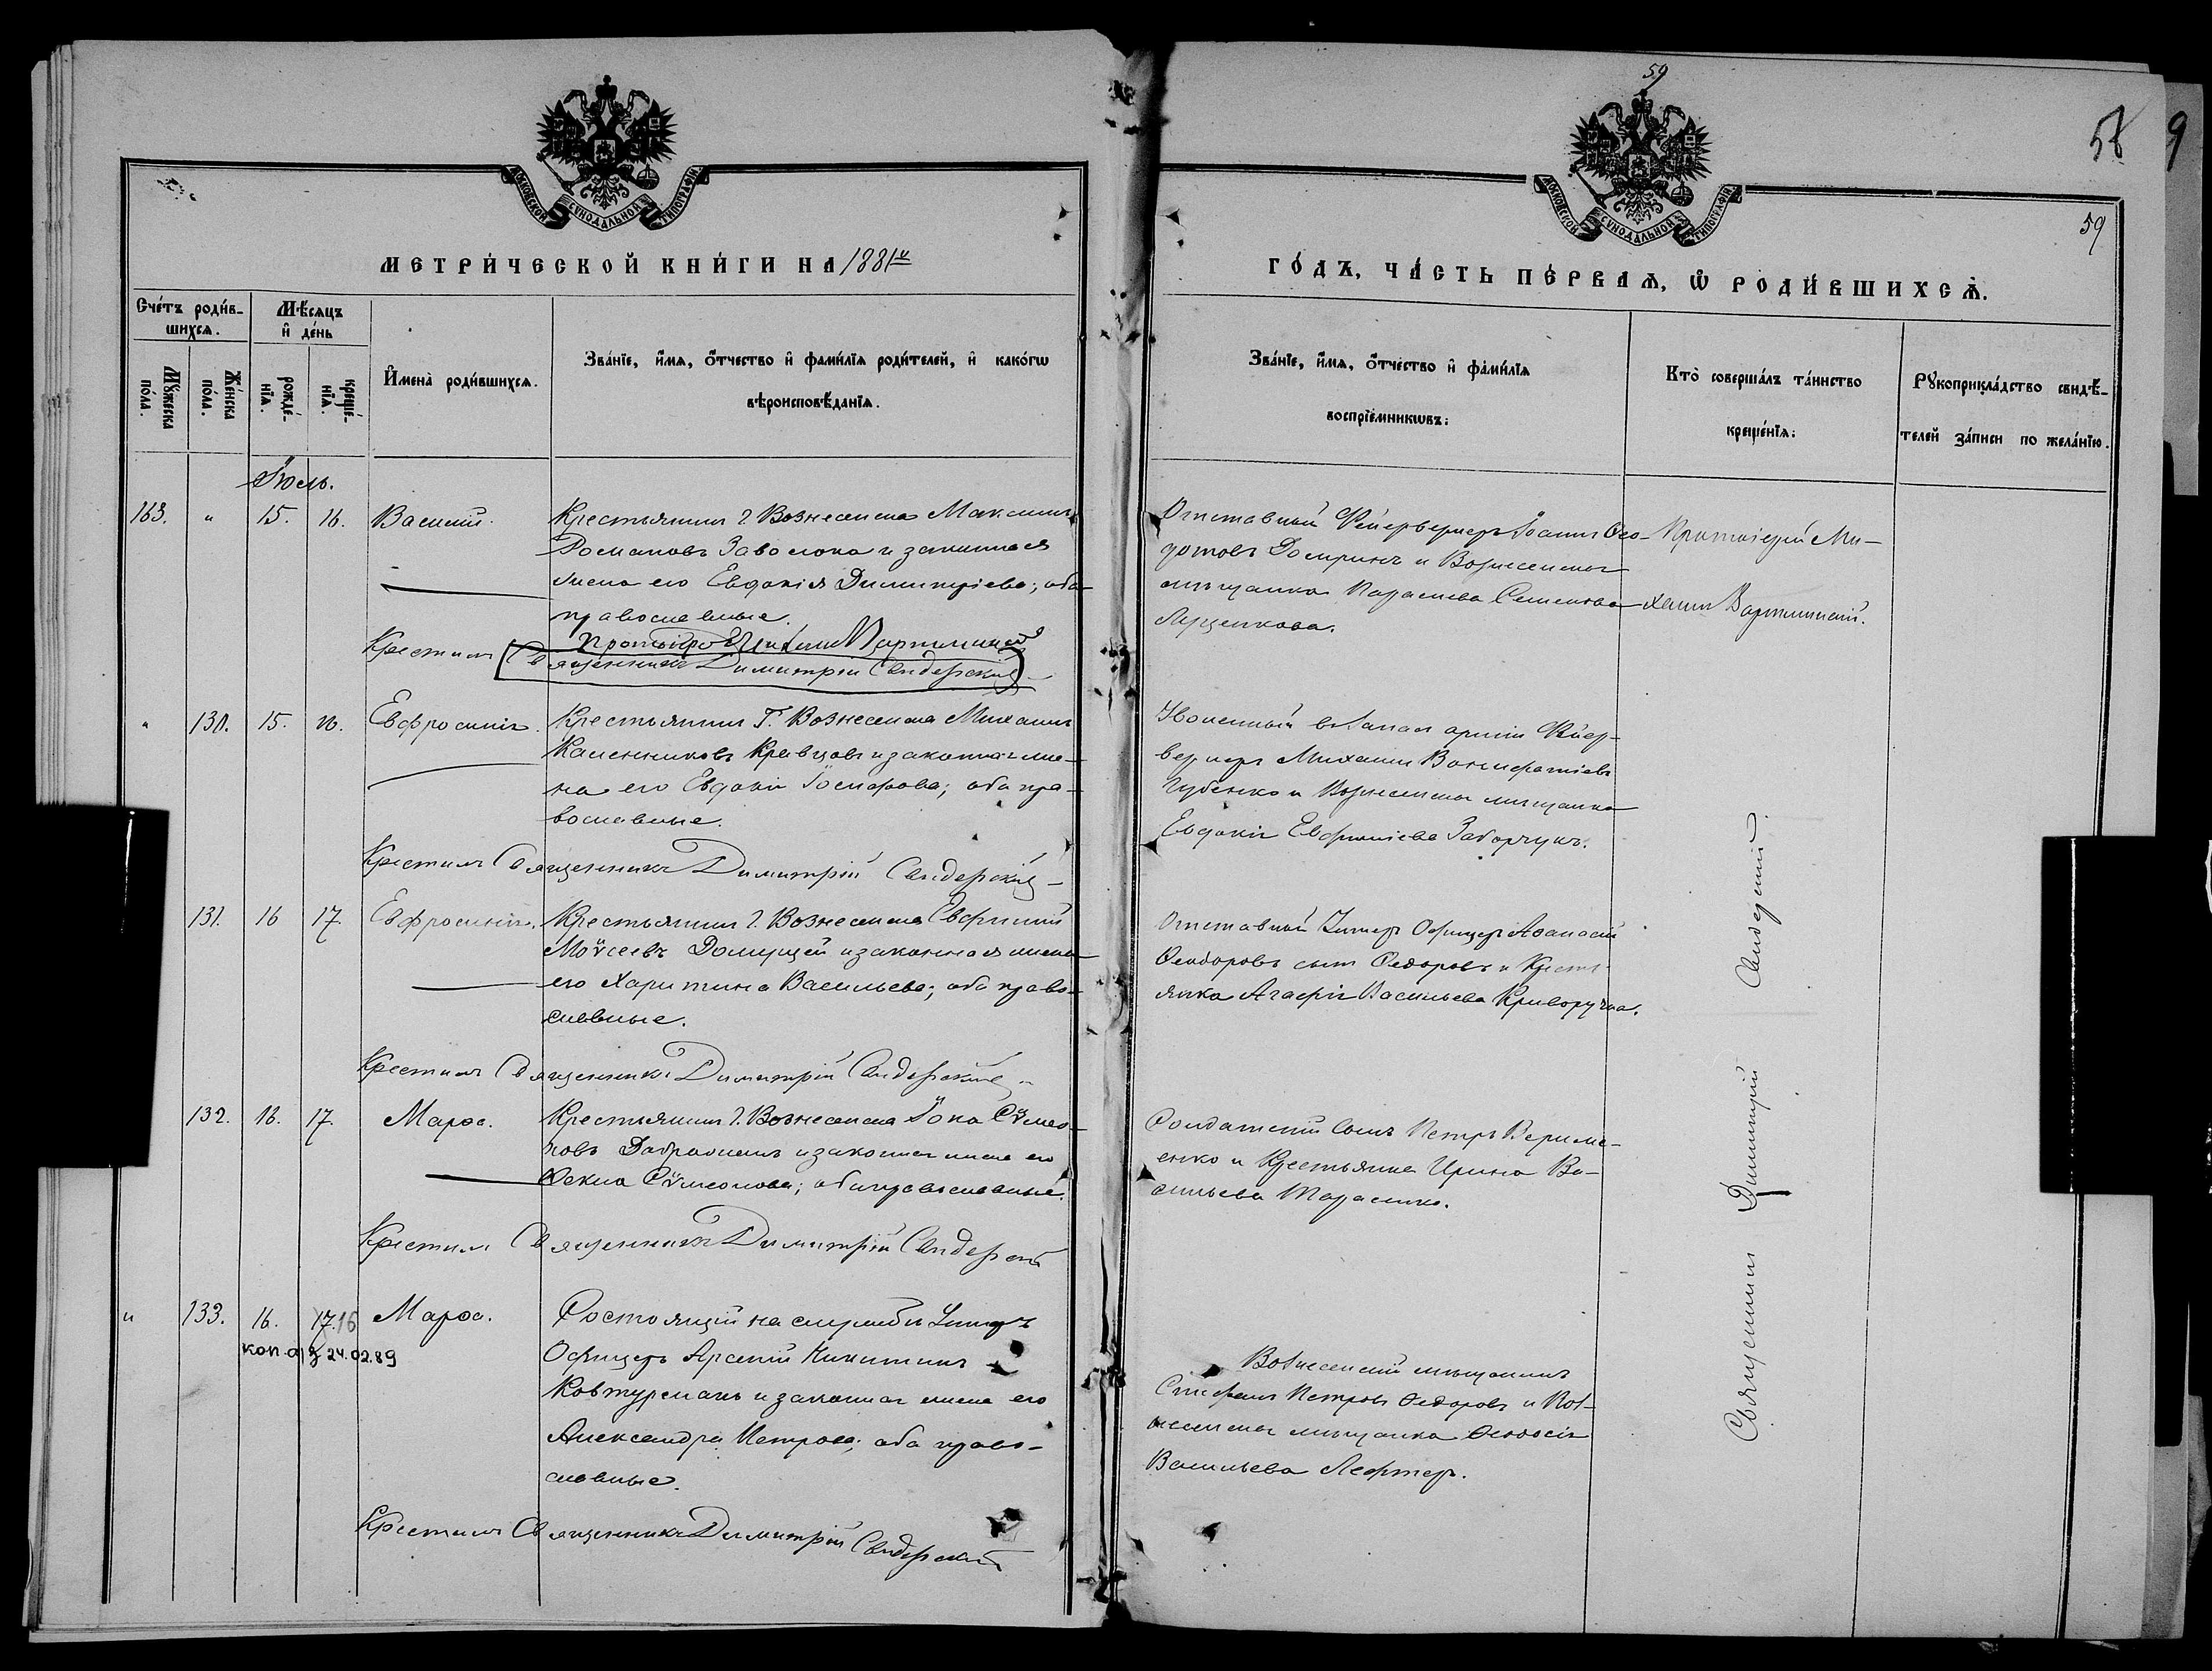 59
58
9
59
МОСКОВСКОЙ СУНОДАЛЬНОЙ ТИПОГРАФІИ
МОСКОВСКОЙ СУНОДАЛЬНОЙ ТИПОГРАФІИ
МЕТРИ́ЧЕСКОЙ КНИ́ГИ НА 1881й
ГО́ДЪ, ЧА́СТЬ ПЕ́РВАѦ, Ѡ РОДИ́ВШИХСѦ.
Сче́тъ роди́в-
шихсѧ.
Мѣ́сѧцъ
и҆ де́нь
Мꙋ́жеска
по́ла.
Же́нска
по́ла.
рожде́-
нїѧ.
креще́-
нїѧ.
И҆мена̀ роди́вшихсѧ.
Зва́нїе, и҆́мѧ, ѻ҆́тчество и҆ фами́лїѧ роди́телей, и҆ како́гѡ
вѣроисповѣ́данїѧ.
Зва́нїе, и҆́мѧ, ѻ҆́тчество и҆ фами́лїѧ
воспрїе́мникѡвъ:
Кто̀ соверша́лъ та́инство
креще́нїѧ:
Рꙋкоприкла́дство свидѣ́-
телей за́писи по жела́нїю.
Іюль.
163. " 15. 16. Василій. Крестьянинъ г. Вознесенска Максимъ
Романовъ Заволока и законная
жена его Евдокія Димитріева; оба
православные.
Крестилъ Протоіерей Михаилъ
Священникъ Димитрій Свидерскій
Отставный Фейерверкеръ Іоаннъ Ѳео-
дотовъ и Вознесенская
мѣщанка Параскева Семенова
Луценкова.
Протоіерей Ми-
хаилъ
" 130. 15. 16. Евфросинія. Крестьянинъ г. Вознесенска Михаилъ
Кравцовъ и законная же-
на его Евдокія Іосифова; оба пра-
вославные.
Крестилъ Священникъ Димитрій Свидерскій
Уволенный въ запасъ арміи Фейер-
веркеръ Михаилъ Вонифатіевъ
Губенко и Вознесенская мѣщанка
Евдокія Евфиміева Заборчукъ.
131. 16 17. Евфросинія. Крестьянинъ г. Вознесенска Евфимій
Моѵсеевъ и законная жена
его Харитина Васильева; оба право-
славные.
Крестилъ Священникъ Димитрій Свидерскій
Отставный Унтеръ Офицеръ Аѳанасій
Ѳеодоровъ сынъ Ѳедоровъ и Кресть-
янка Агафія Васильева Криворучка.
132. 16. 17. Марѳа. Крестьянинъ г. Вознесенска Іона Сѵмео-
новъ и законная жена его
Ѳекла Сѵмеонова; оба православные.
Крестилъ Священникъ Димитрій Свидерскій
Солдатскій сынъ Петръ Вериме-
енко и Крестьянка Ирина Ва-
сильева Тарасенко.
" 133. 16. 17.16 Марѳа. Состоящій на службѣ Унтеръ
коп. 24.02.89
Офицеръ Арсеній Никитинъ
Ковтурманъ и законная жена его
Александра Петрова; оба право-
славные.
Крестилъ Священникъ Димитрій Свидерскій
Вознесенскій мѣщанинъ
Стефанъ Петровъ Ѳедоровъ и Воз-
несенская мѣщанка Ѳеодосія
Васильева Лефтеръ.
Священникъ Димитрій Свидерскій.